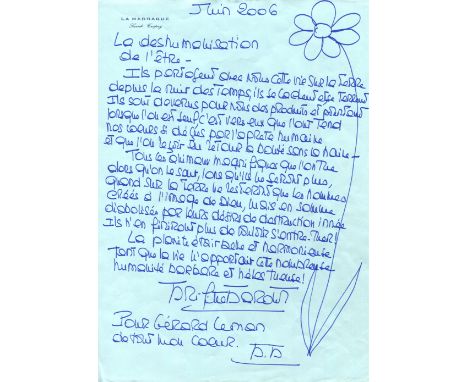 Juin 2006
LA MADRAGUE
Saint-Tropez
La deshumanisation
de l'être -
Ils partagent avec nous cette vie sur la Terre
depuis la nuit des Temps, ils se cachent et se terrent
Ils sont devenus pour nous des produits et pourtant
lorsque l'on est seul c'est vers eux que l'on tend
nos coeurs si déçus par l'apreté humaine
et que l'on reçoit en retour la bonté sans la haine -
Tous ces animaux magnifiques que l'on tue
alors qu'on le sait, lorsqu'ils ne seront plus,
quand sur la Terre ne resteront que les hommes
créés à l'image de Dieu, mais en somme
diabolisés par leurs désirs de destruction innée
Ils n'en finiront plus de s'entre Tuer!
La planète était belle et harmonieuse
tant que la vie l'apportait cette nombreuse
humanité barbare et hélas Tueuse!
Brigitte Bardot
Pour Gérard Leman
de tout mon coeur.
B.B